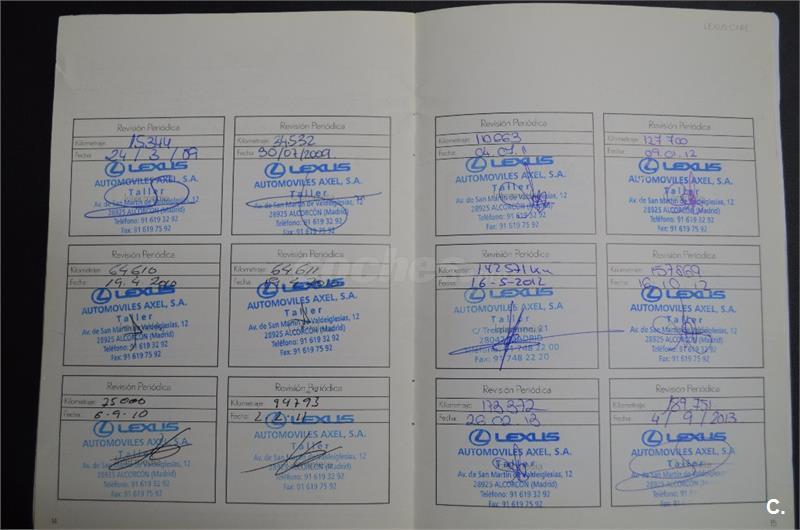 LEXUS CARE
Revisión Periódica
Kilometraje: 15344
Fecha: 24/3/09
LEXUS
AUTOMOVILES AXEL, S.A.
Taller
Av. de San Martín de Valdeiglesias, 12
28925 ALCORCÓN (Madrid)
Teléfono: 91 619 32 92
Fax: 91 619 75 92
Revisión Periódica
Kilometraje: 34532
Fecha: 30/07/2009
LEXUS
AUTOMOVILES AXEL, S.A.
Taller
Av. de San Martín de Valdeiglesias, 12
28925 ALCORCÓN (Madrid)
Teléfono: 91 619 32 92
Fax: 91 619 75 92
Revisión Periódica
Kilometraje: 64610
Fecha: 19.4.2010
LEXUS
AUTOMOVILES AXEL, S.A.
Taller
Av. de San Martín de Valdeiglesias, 12
28925 ALCORCÓN (Madrid)
Teléfono: 91 619 32 92
Fax: 91 619 75 92
Revisión Periódica
Kilometraje: 64611
Fecha:
LEXUS
AUTOMOVILES AXEL, S.A.
Taller
Av. de San Martín de Valdeiglesias, 12
28925 ALCORCÓN (Madrid)
Teléfono: 91 619 32 92
Fax: 91 619 75 92
Revisión Periódica
Kilometraje: 75000
Fecha: 6-9-10
LEXUS
AUTOMOVILES AXEL, S.A.
Taller
Av. de San Martín de Valdeiglesias, 12
28925 ALCORCÓN (Madrid)
Teléfono: 91 619 32 92
Fax: 91 619 75 92
Revisión Periódica
Kilometraje: 94793
Fecha: 2.2.11
LEXUS
AUTOMOVILES AXEL, S.A.
Taller
Av. de San Martín de Valdeiglesias, 12
28925 ALCORCÓN (Madrid)
Teléfono: 91 619 32 92
Fax: 91 619 75 92
14
Revisión Periódica
Kilometraje: 110663
Fecha: 04.07.11
LEXUS
AUTOMOVILES AXEL, S.A.
Taller
Av. de San Martín de Valdeiglesias, 12
28925 ALCORCÓN (Madrid)
Teléfono: 91 619 32 92
Fax: 91 619 75 92
Revisión Periódica
Kilometraje: 127700
Fecha: 09.01.12
LEXUS
AUTOMOVILES AXEL, S.A.
Taller
Av. de San Martín de Valdeiglesias, 12
28925 ALCORCÓN (Madrid)
Teléfono: 91 619 32 92
Fax: 91 619 75 92
Revisión Periódica
Kilometraje: 142571km
Fecha: 16-5-2012
LEXUS
AUTOMOVILES AXEL, S.A.
Taller
21
MADRID
Teléfono: 91 748 22 00
Fax: 91 748 22 20
Revisión Periódica
Kilometraje: 157869
Fecha: 16.10.12
LEXUS
AUTOMOVILES AXEL, S.A.
Taller
Av. de San Martín de Valdeiglesias, 12
28925 ALCORCÓN (Madrid)
Teléfono: 91 619 32 92
Fax: 91 619 75 92
Revisión Periódica
Kilometraje: 173372
Fecha: 26.02.13
LEXUS
AUTOMOVILES AXEL, S.A.
Av. de San Martín de Valdeiglesias, 12
28925 ALCORCÓN (Madrid)
Teléfono: 91 619 32 92
Fax: 91 619 75 92
Revisión Periódica
Kilometraje: 189751
Fecha: 4/9/2013
LEXUS
AUTOMOVILES AXEL, S.A.
Taller
Av. de San Martín de Valdeiglesias, 12
28925 ALCORCÓN (Madrid)
Teléfono: 91 619 32 92
Fax: 91 619 75 92
15
C.